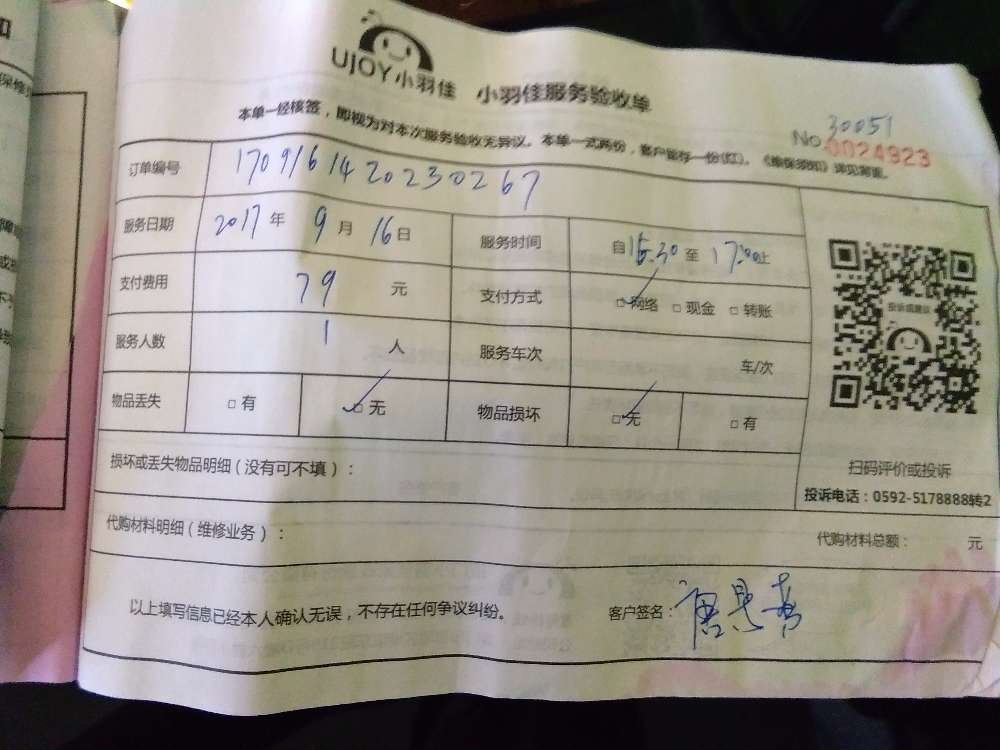 UJOY小羽佳 小羽佳服务验收单
本单一经核签，即视为对本次服务验收无异议。本单一式两份，客户留存一份(红)。《维保须知》详见背面。
No 30051
0024923
订单编号 1709161420230267
服务日期 2017年9月16日 服务时间 自15:30至17:00止
支付费用 79元 支付方式 □网络 □现金 □转账
服务人数 1人 服务车次 车/次
物品丢失 □有 □无 物品损坏 □无 □有
损坏或丢失物品明细（没有可不填）：
代购材料明细（维修业务）： 代购材料总额： 元
以上填写信息已经本人确认无误，不存在任何争议纠纷。 客户签名：
投诉或建议
扫码评价或投诉
投诉电话：0592-5178888转2